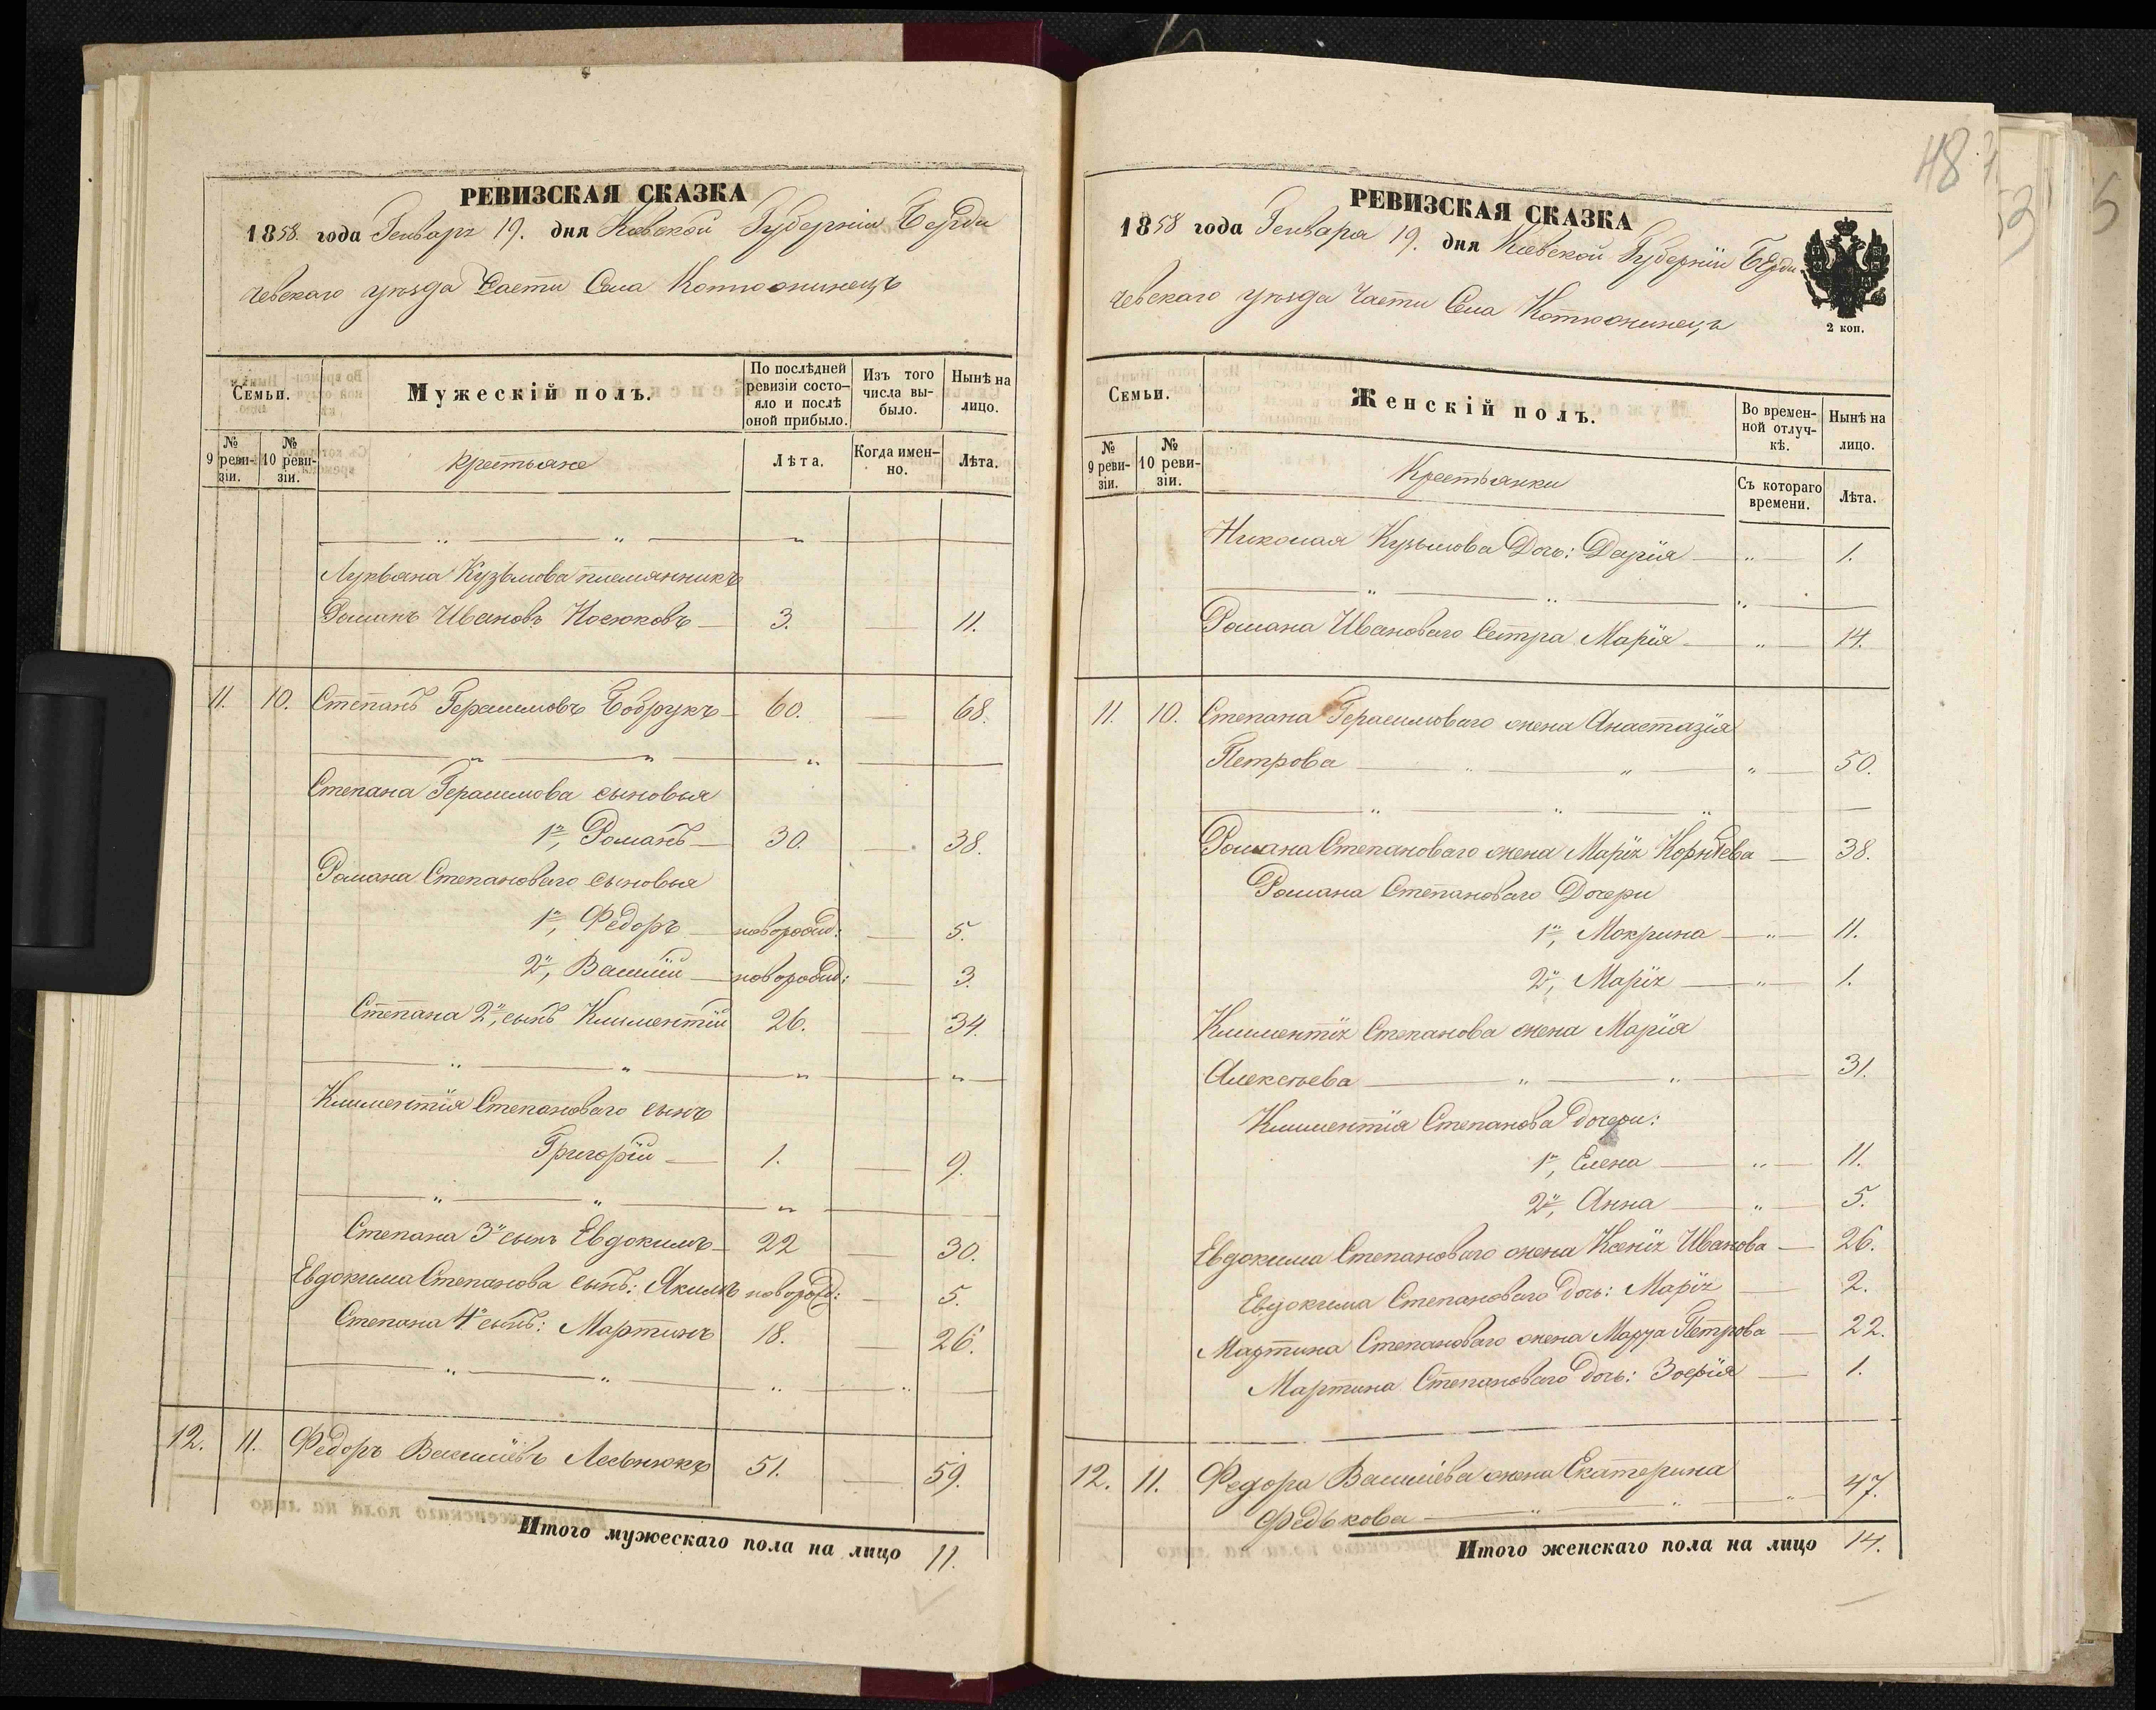 РЕВИЗСКАЯ СКАЗКА
1858. года Генваря 19. дня Киевской Губерніи Берди
чевскаго уѣзда Части Села Котюжинецъ
Семьи.
Мужескій полъ.
По послѣдней ревизіи состояло и послѣ оной прибыло.
Изъ того числа выбыло.
Нынѣ на лицо.
№ 9 ревизіи.
№ 10 ревизіи.
Крестьяне
Лѣта.
Когда именно.
Лѣта.
Лукьяна Кузьмова племянникъ
Романъ Ивановъ Носюковъ 3. 11.
11. 10. Степанъ Герасимовъ Бобрукъ 60. 68.
Степана Герасимова сыновья
1й, Романъ 30. 38.
Романа Степановаго сыновья
1й, Федоръ новорожд: 5.
2й, Василій новорожд: 3.
Степана 2й, сынъ Климентій 26. 34.
Климентія Степановаго сынъ
Григорій 1. 9.
Степана 3й сынъ Евдокимъ 22 30.
Евдокима Степанова сынъ: Якимъ новорожд: 5.
Степана 4й сынъ: Мартинъ 18. 26.
12. 11. Федоръ Василіевъ Лесьнюкъ 51. 59.
Итого мужескаго пола на лицо 11.
48
5
РЕВИЗСКАЯ СКАЗКА
1858 года Генваря 19. дня Киевской Губерніи Берди
чевскаго уѣзда Части Села Котюжинецъ
2 коп.
Семьи.
Женскій полъ.
Во временной отлучкѣ.
Нынѣ на лицо.
№ 9 ревизіи.
№ 10 ревизіи.
Крестьянки
Съ котораго времени.
Лѣта.
Николая Кузьмова Дочь: Дарія 1.
Романа Ивановаго Сестра Марія 14.
11. 10. Степана Герасимоваго жена Анастазія
Петрова 50.
Романа Степановаго жена Марія Корнѣева 38.
Романа Степановаго Дочери
1я, Мокрина 11.
2я, Марія 1.
Климентія Степанова жена Марія
Алексѣева 31.
Климентія Степанова дочери:
1я, Елена 11.
2я, Анна 5.
Евдокима Степановаго жена Ксенія Иванова 26.
Евдокима Степановаго дочь: Марія 2.
Мартина Степановаго жена Марья Петрова 22.
Мартина Степановаго дочь: Зофія 1.
12. 11. Федора Василіева жена Екатерина
Федькова 47.
Итого женскаго пола на лицо 14.